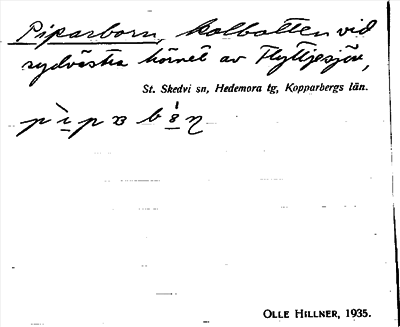 Piparborn, kolbotten vid
sydvästra hörnet av Flyttjesjön,
St. Skedvi sn, Hedemora tg, Kopparbergs län.
OLLE HILLNER, 1935.